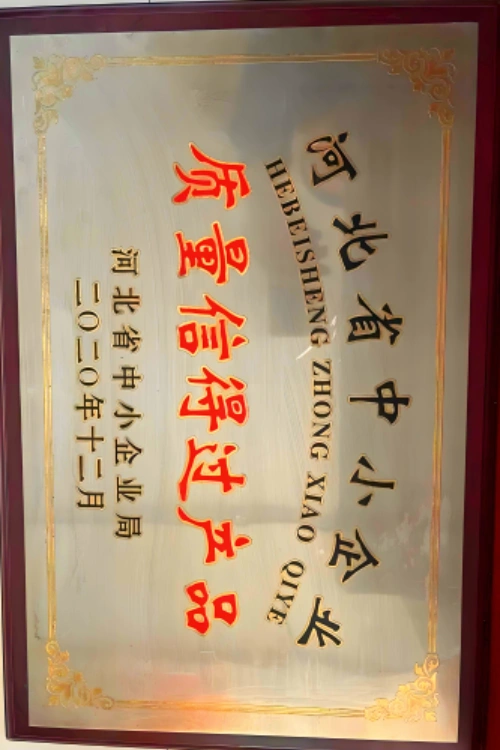 河北省中小企业
HEBEISHENG ZHONG XIAO QIYE
质量信得过产品
河北省中小企业局
二〇二〇年十二月